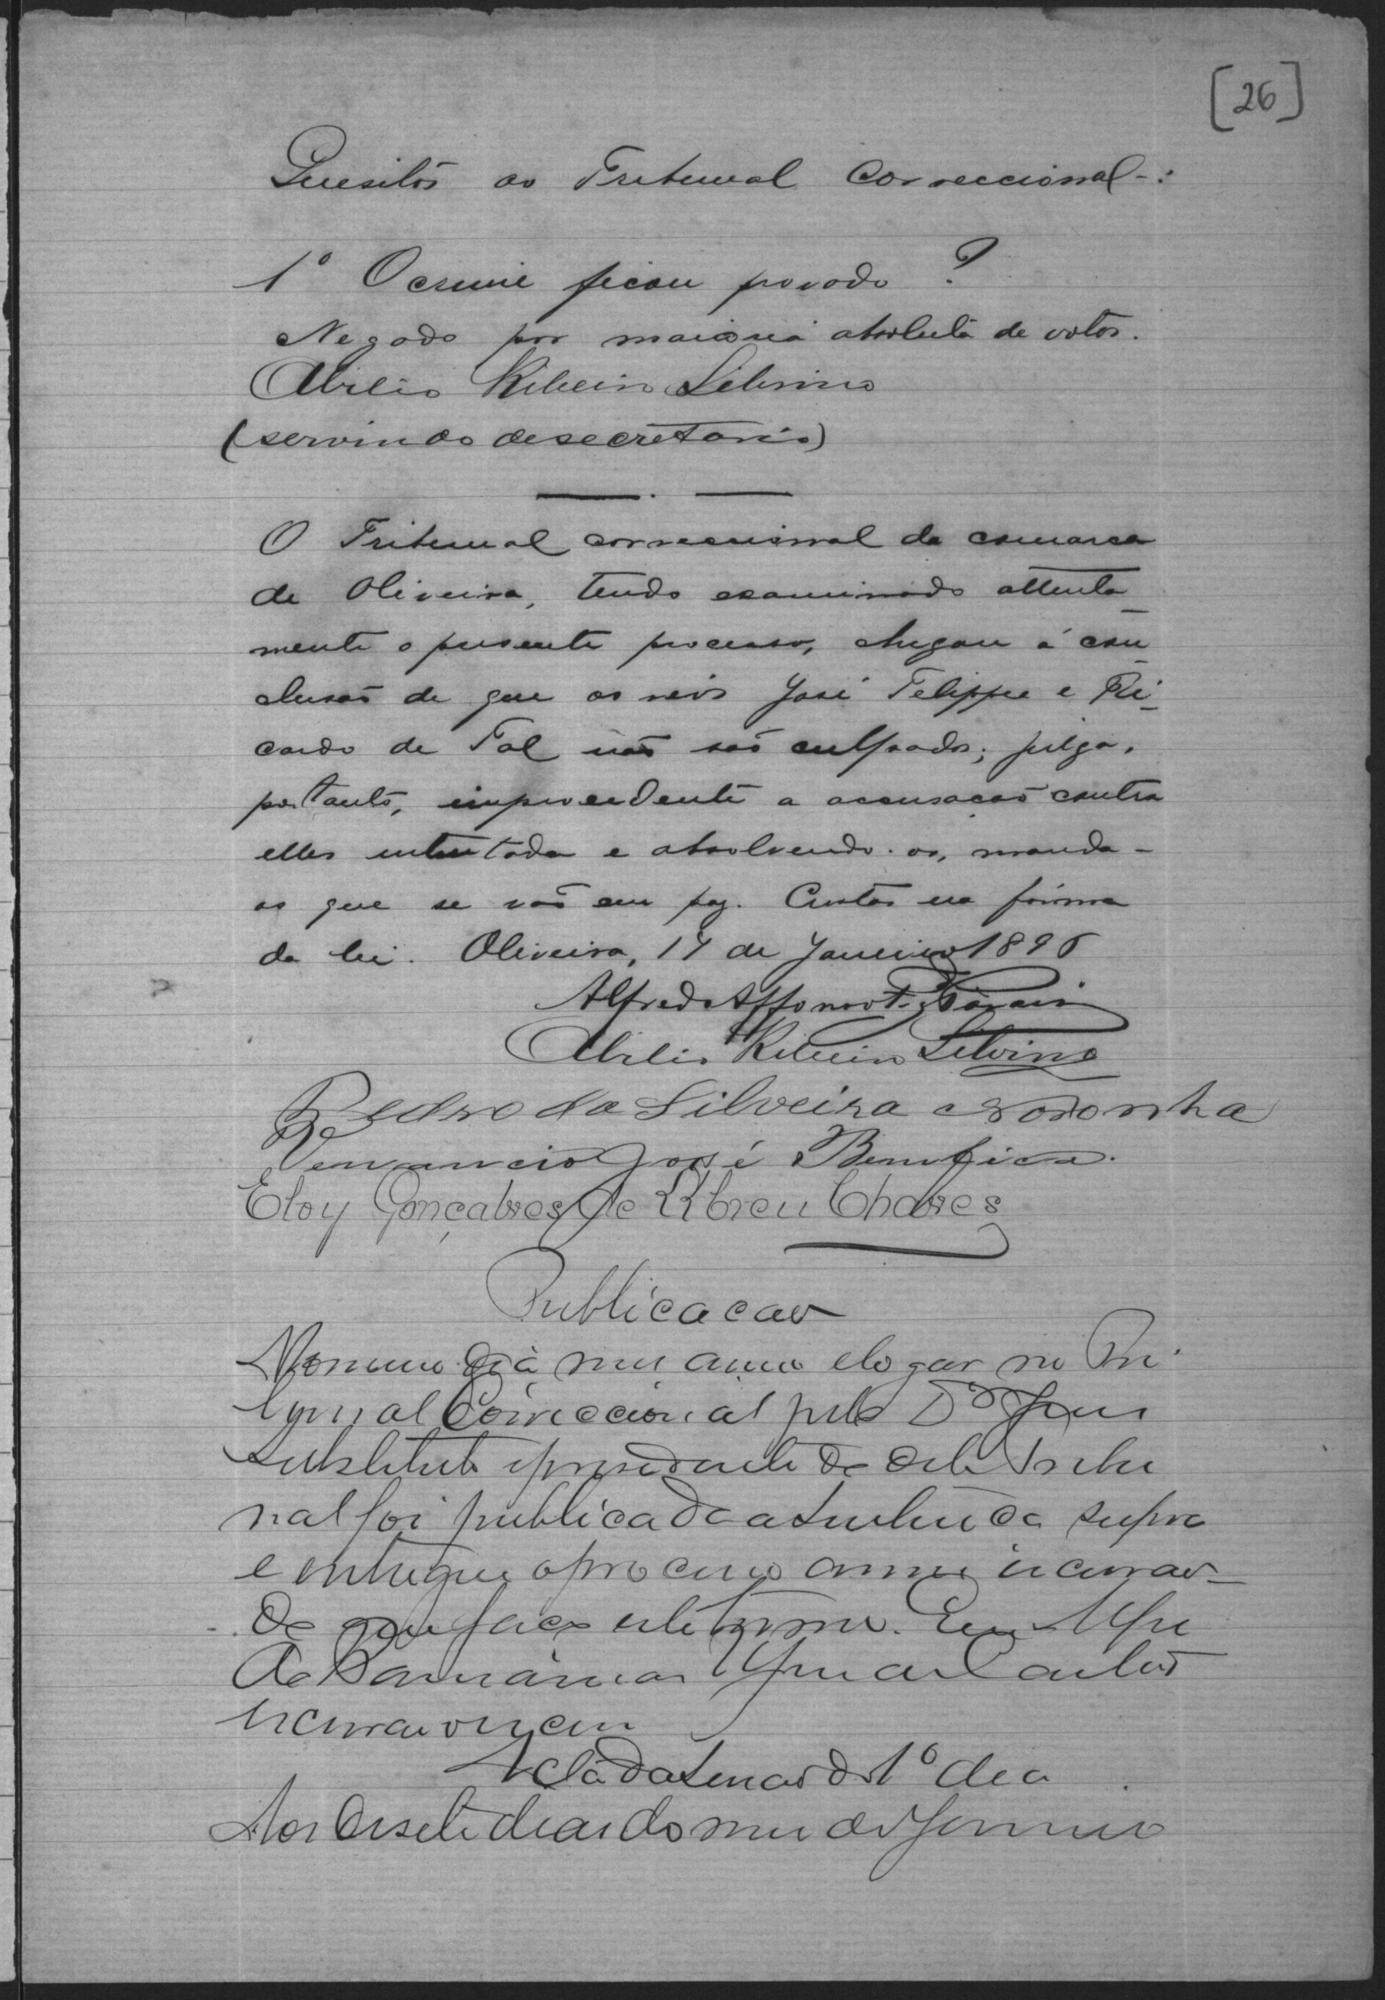 [26]
Quesitos ao Tribunal Correccional-:
1º O crime ficou provado?
Negado por maioria absoluta de votos.
Abilio Ribeiro Silvino
(servindo de secretario)
O Tribunal correccional da comarca
de Oliveira, tendo examinado attenta-
mente o presente processo, chegou á con-
clusão de que os réos José Felippe e Ri-
cardo de Tal não são culpados; julga,
portanto, improcedente a accusação contra
elles intentada e absolvendo-os, manda-
os que se vão em paz. Custas na fórma
da lei. Oliveira, 17 de Janeiro 1896
Alfredo Affonso
Abilio Ribeiro Silvino
Pedro da Silveira Noronha
Venancio José Bemfica.
Eloy Gonçalves de Abreu Chaves
Publicacao
No mesmo dia mez anno e logar no Tri
bunal Correccional pelo Dor Juis
Substituto e presidente do dito Tribu
nal foi publicada a sentença supra
e entregue o processo a mim escrivao
do que faço este termo. Eu
escrivao
Acta da sessão do 1º dia
Aos desete dias do mez de Janeiro